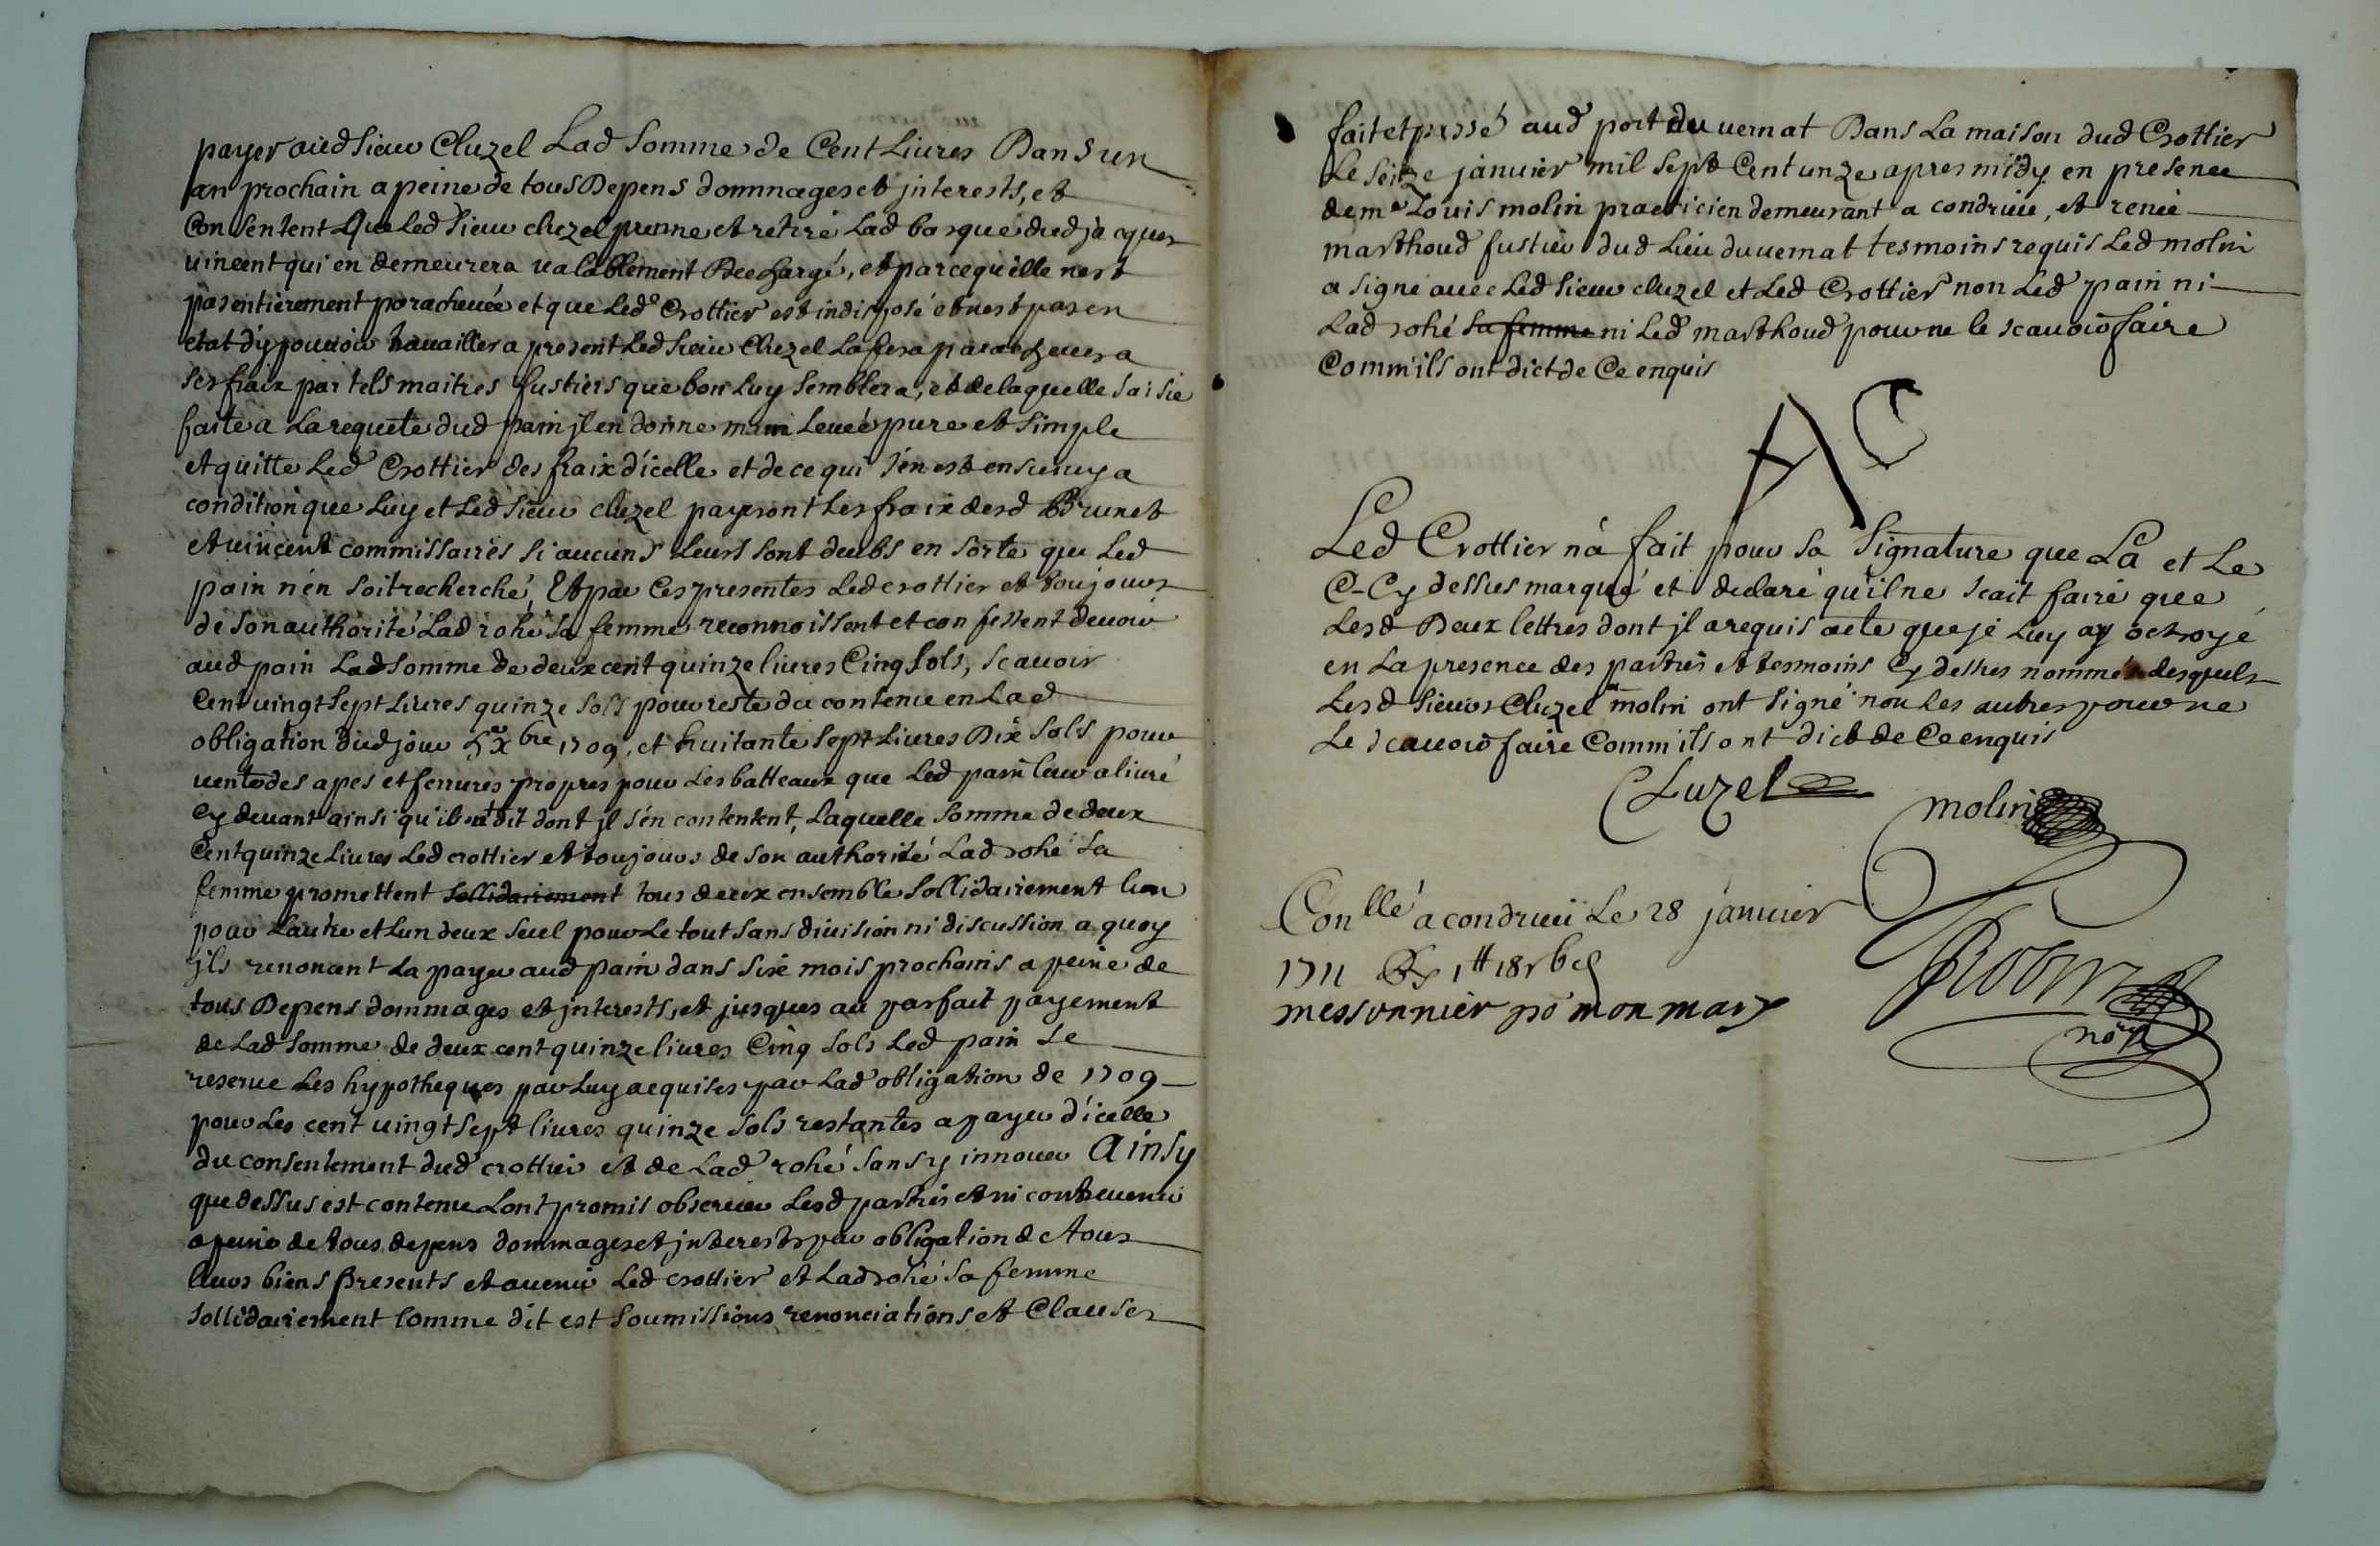 payer aud sieur Cluzel Lad somme de Cent Livres Dans un
an prochain a peine de tous Depens dommages et jnterests, et
Consentent Que Led sieur cluzel prenne et retire Lad barque dud jacques
vincent qui en demeurera valablement Deschargé, et parce quélle nest
pas entierement parachevée et que Led Crottier est indisposé et nest pas en
etat d'y pouvoir travailler a present Led sieur Cluzel La fera parachever a
ses fraix par tels maitres fustiers que bon Luy semblera, et de laquelle saisie
faite a La requete dud pain jl en donne main Levée pure et simple
et quitte Led Crottier des fraix d'icelle et de ce qui s'en est ensuivy a
condition que Luy et Led sieur cluzel payeront Les fraix desd Brunet
et vincent commissaires si aucuns Leurs sont deubs en sorte que Led
pain n'en soit recherché, Et par Ces presentes Led crottier et toujours
de son authorité Lad rohé sa femme reconnoissent et confessent devoir
aud pain Lad somme de deux cent quinze livres Cinq sols, scavoir
Cent vingt sept Livres quinze sols pour reste du contenu en Lad
obligation dud jour 5e xbre 1709, et huitante sept Livres Dix sols pour
vente des apes et ferrures propres pour Les batteaux que Led pain leur a livré
Cy devant ainsi qu'il dit dont jl s'en contentent, Laquelle somme de deux
Cent quinze Livres Led crottier et toujours de son authorité Lad rohé sa
femme promettent sollidairement tous deux ensemble sollidairement lun
pour L'autre et Lun deux seul pour Le tout sans division ni discussion a quoy
jls renoncent La payer aud pain dans six mois prochains a peine de
tous Depens dommages et jnterests, et jusques au parfait payement
de Lad somme de deux cent quinze livres Cinq sols Led pain se
reserve Les hypotheques par Luy acquises par Lad obligation de 1709
pour Les cent vingt sept livres quinze sols restantes a payer d'icelle
du consentement dud crottier et de Lad rohé sans y innover Ainsy
que dessus est contenu Lont promis observer Lesd parties et ni contrevenir
a peine de tous depens dommages et jnterests par obligation de tous
leurs biens presents et avenir Led crottier et Lad rohé sa femme
sollidairement comme dit est soumissions renonciations et Clauses
fait et passé aud port du vernat Dans La maison dud Crottier
Le seize janvier mil sept Cent unze apres midy en presence
de me Louis molin practicien demeurant a condrieu, et renée
marthoud fustier dud Lieu du vernat tesmoins requis Led molin
a signé avec Led sieur cluzel et Led Crottier non Led pain ni
Lad rohé sa femme ni Led marthoud pour ne le scavoir faire
Comm'ils ont dict de Ce enquis
AC
Led Crottier n'a fait pour sa signature que La et Le
C-Cy dessus marqué et declaré qu'il ne scait faire que
Lesd Deux lettres dont jl a requis acte que je Luy ay octroyé
en La presence des parties et tesmoins Cy dessus nommés desquels
Lesd sieurs Cluzel molin ont signé non les autres pour ne
Le scavoir faire Comm'ils ont dict de Ce enquis
Cluzel
molin
Conllé a condrieu Le 28 janvier
1711 1tt 18s
messonnier po mon mary
no